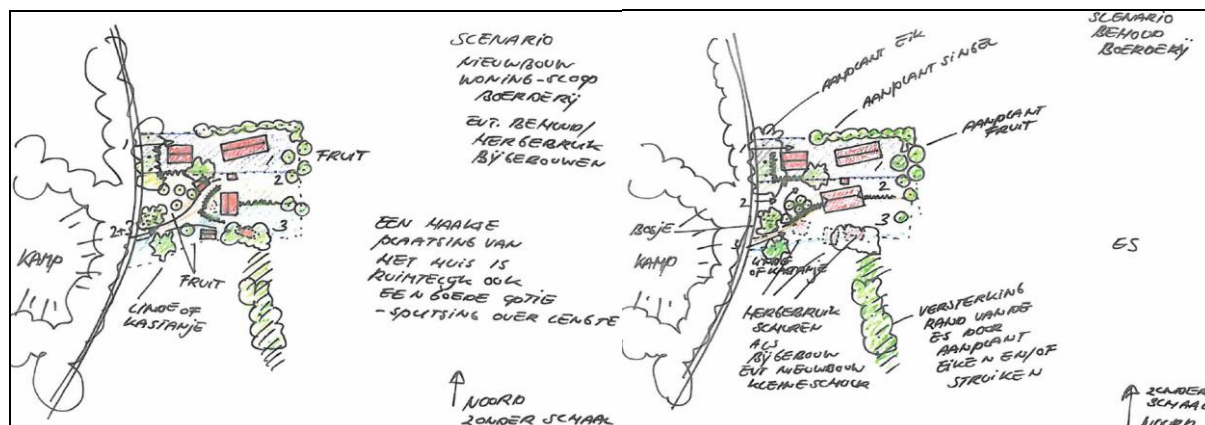 SCENARIO
NIEUWBOUW
WONING-SLOOP
BOERDERIJ
EVT. BEHOUD/
HERGEBRUIK
BIJGEBOUWEN
FRUIT
1
2
3
2+3
KAMP
FRUIT
LINDE OF
KASTANJE
EEN HAAKSE
PLAATSING VAN
HET HUIS IS
RUIMTELIJK OOK
EEN GOEDE OPTIE
-SPLITSING OVER LENGTE
NOORD
ZONDER SCHAAL
SCENARIO
BEHOUD
BOERDERIJ
AANPLANT EIK
AANPLANT SINGEL
AANPLANT
FRUIT
1
1
2
2
3
3
BOSJE
KAMP
LINDE
OF KASTANJE
ES
HERGEBRUIK
SCHUREN
ALS
BIJGEBOUW
EVT NIEUWBOUW
KLEINE SCHUUR
VERSTERKING
RAND VAN DE
ES DOOR
AANPLANT
EIKEN EN/OF
STRUIKEN
ZONDER
SCHAAL
NOORD